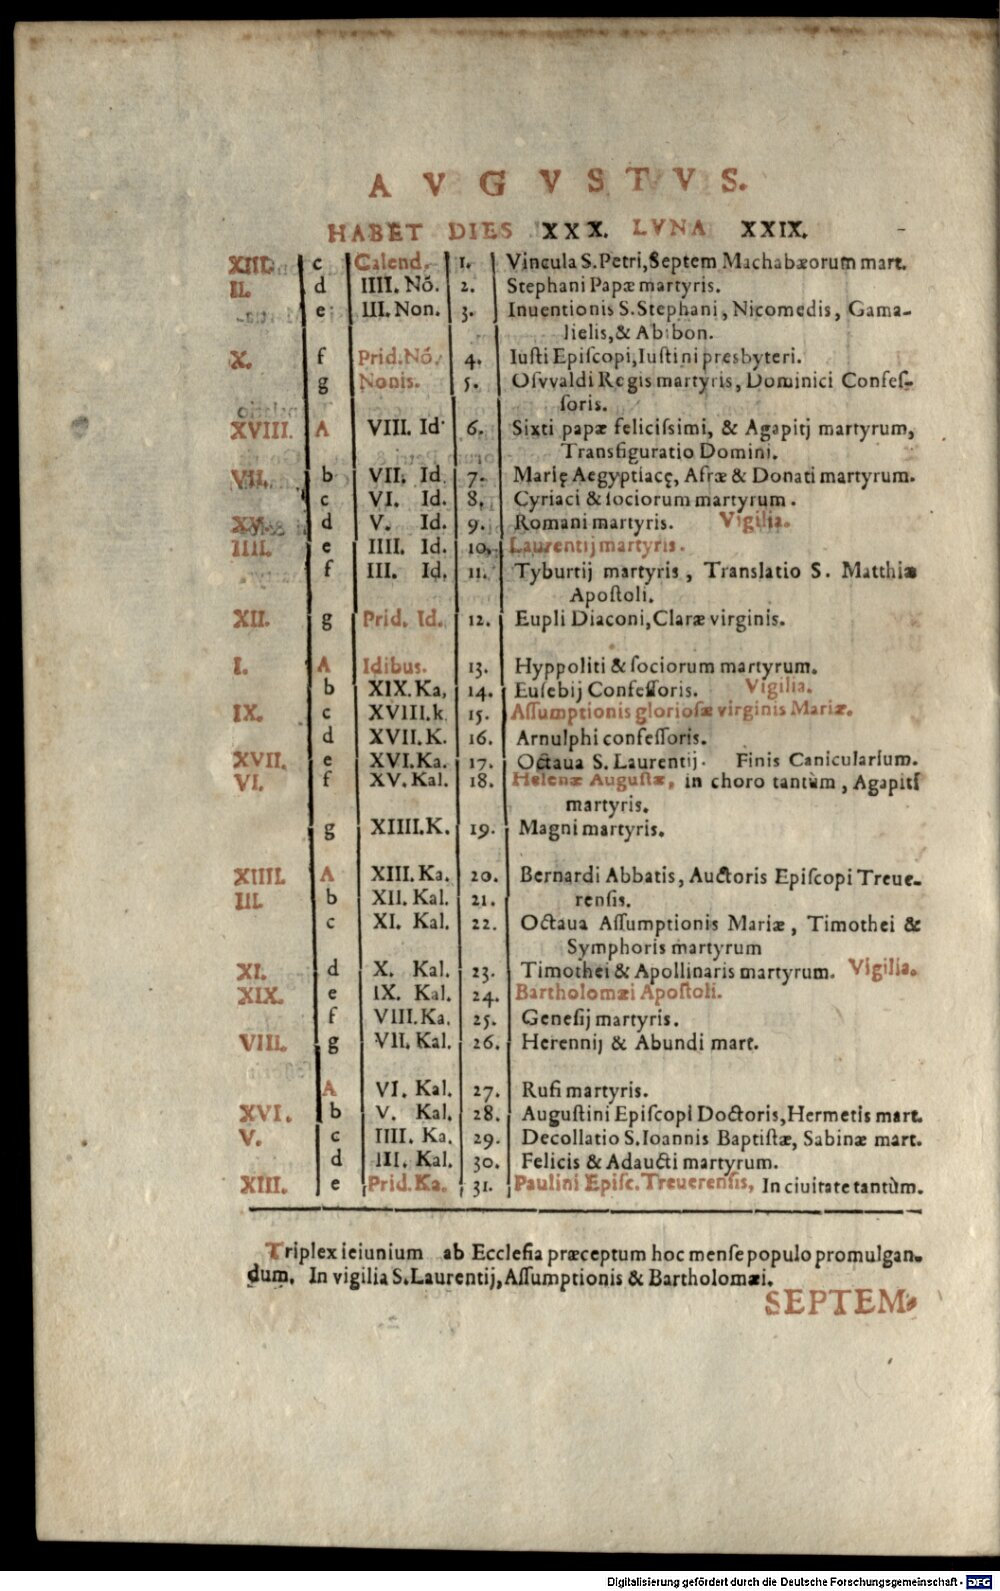 AVGVSTVS.
HABET DIES XXX. LVNA XXIX.
XIII. c Calend. 1. Vincula S. Petri, Septem Machabæorum mart.
II. d IIII. Nō. 2. Stephani Papæ martyris.
e III. Non. 3. Inuentionis S. Stephani, Nicomedis, Gama-
lielis, & Abibon.
X. f Prid. Nō. 4. Iuſti Epiſcopi, Iuſtini presbyteri.
g Nonis. 5. Oſvvaldi Regis martyris, Dominici Confeſ-
ſoris.
XVIII. A VIII. Id. 6. Sixti papæ feliciſsimi, & Agapitj martyrum,
Transfiguratio Domini.
VII. b VII. Id. 7. Marię Aegyptiacę, Afræ & Donati martyrum.
c VI. Id. 8. Cyriaci & ſociorum martyrum.
XV. d V. Id. 9. Romani martyris. Vigilia.
IIII. e IIII. Id. 10. Laurentij martyris.
f III. Id. 11. Tyburtij martyris, Translatio S. Matthiæ
Apoſtoli.
XII. g Prid. Id. 12. Eupli Diaconi, Claræ virginis.
I. A Idibus. 13. Hyppoliti & ſociorum martyrum.
b XIX. Ka, 14. Euſebij Confeſſoris. Vigilia.
IX. c XVIII. k 15. Aſſumptionis glorioſæ virginis Mariæ.
d XVII. K. 16. Arnulphi confeſſoris.
XVII. e XVI. Ka. 17. Octaua S. Laurentij. Finis Canicularium.
VI. f XV. Kal. 18. Helenæ Auguſtæ, in choro tantùm, Agapiti
martyris.
g XIIII. K. 19. Magni martyris.
XIIII. A XIII. Ka. 20. Bernardi Abbatis, Auctoris Epiſcopi Treue-
III. b XII. Kal. 21. renſis.
c XI. Kal. 22. Octaua Aſſumptionis Mariæ, Timothei &
Symphoris martyrum
XI. d X. Kal. 23. Timothei & Apollinaris martyrum. Vigilia.
XIX. e IX. Kal. 24. Bartholomæi Apoſtoli.
f VIII. Ka. 25. Geneſij martyris.
VIII. g VII. Kal. 26. Herennij & Abundi mart.
A VI. Kal. 27. Rufi martyris.
XVI. b V. Kal. 28. Auguſtini Epiſcopi Doctoris, Hermetis mart.
V. c IIII. Ka. 29. Decollatio S. Ioannis Baptiſtæ, Sabinæ mart.
d III. Kal. 30. Felicis & Adaucti martyrum.
XIII. e Prid. Ka. 31. Paulini Epiſc. Treuerenſis, In ciuitate tantùm.
Triplex ieiunium ab Eccleſia præceptum hoc menſe populo promulgan-
dum. In vigilia S. Laurentij, Aſſumptionis & Bartholomæi.
SEPTEM-
Digitalisierung gefördert durch die Deutsche Forschungsgemeinschaft - DFG